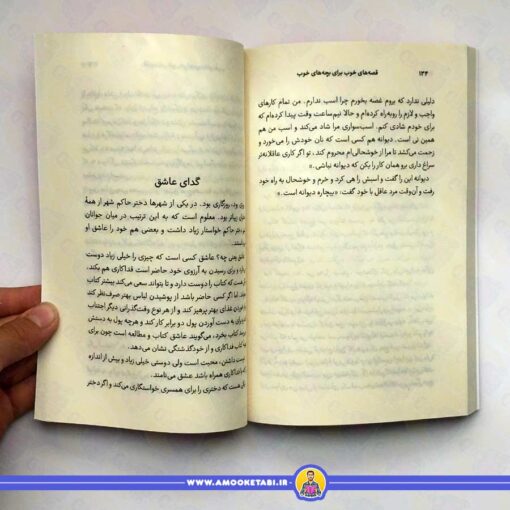 ۱۴۴ قصه‌های خوب برای بچه‌های خوب
دلیلی ندارد که بروم غصه بخورم چرا اسب ندارم. من تمام کارهای
واجب و لازم را روبه‌راه کرده‌ام و حالا نیم‌ساعت وقت پیدا کرده‌ام که
برای خودم شادی کنم. اسب‌سواری مرا شاد می‌کند و اسب من هم
همین نی است. دیوانه هم کسی است که نان خودش را می‌خورد و
زحمت می‌کشد تا مرا از خوشحالی‌ام محروم کند. تو اگر کاری عاقلانه‌تر
سراغ داری برو همان کار را بکن که دیوانه نباشی.»
دیوانه این را گفت و اسبش را هی کرد و خرم و خوشحال به راه خود
رفت و آن‌وقت مرد عاقل با خود گفت: «بیچاره دیوانه است.»
گدای عاشق
بود، روزگاری بود. در یکی از شهرها دختر حاکم شهر از همهٔ
زیباتر بود. معلوم است که به این ترتیب در میان جوانان
دختر حاکم خواستار زیاد داشت و بعضی هم خود را عاشق او
عاشق یعنی چه؟ عاشق کسی است که چیزی را خیلی زیاد دوست
دارد و برای رسیدن به آرزوی خود حاضر است فداکاری هم بکند.
هست که کتاب را دوست دارد و تا بتواند سعی می‌کند بیشتر کتاب
اما اگر کسی حاضر باشد از پوشیدن لباس بهتر صرف‌نظر کند
خوردن غذای بهتر پرهیز کند و از هر نوع وقت‌گذرانی دیگر اجتناب
برای به دست آوردن پول دو برابر کار کند و هرچه پول به دستش
کتاب بخرد، می‌گویند عاشق کتاب و مطالعه است چون برای
به کتاب فداکاری و از خودگذشتگی نشان می‌دهد.
دوست داشتن، محبت است ولی دوستی خیلی زیاد و بیش از اندازه
با فداکاری همراه باشد عشق می‌نامند.
هست که دختری را برای همسری خواستگاری می‌کند و اگر دختر
WWW.AMOOKETABI.IR